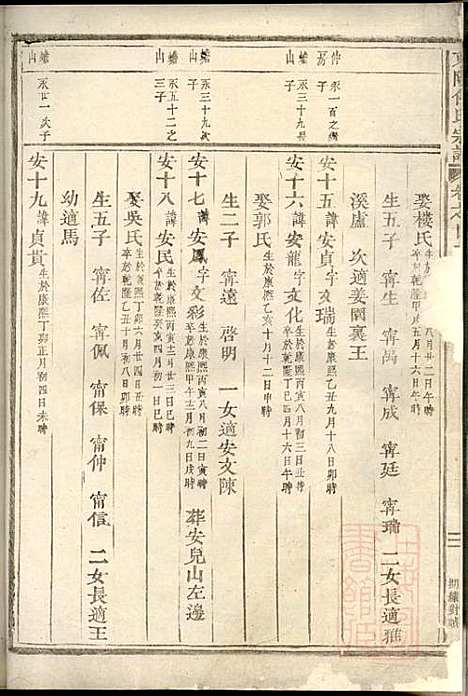 娶樓氏
八月廿二日午時
五月十六日午時
生五子 甯生 甯禹 甯成 甯廷 甯瑞 二女長適雅
溪盧 次適姜閣裏王
仲房 永一百之
安十五 諱安貞字文瑞
生於康熙乙丑九月十八日卯時
永三十九
安十六 諱安龍字文化
生於康熙丙寅八月初三日丑時
卒於乾隆丁巳四月十六日午時
娶郭氏
生於康熙乙亥十月十二日申時
生二子 甯遠 啓明 一女適安文陳
蟾山 永三十九次子
安十七 諱安鳳字文彩
生於康熙丙寅八月初二日寅時
卒於康熙甲午十二月初九日戌時
葬安兒山左邊
蟾山 永五十二之三子
安十八 諱安民
生於康熙丙寅十二月廿三日巳時
卒於乾隆癸亥四月初一日巳時
娶吳氏
生於康熙丁卯六月廿四日丑時
卒於乾隆乙丑十月初七日卯時
生五子 甯佐 甯佩 甯保 甯仲 甯信 二女長適王
幼適馬
蟾山 永廿一次子
安十九 諱貞貴
生於康熙丁卯正月初四日未時